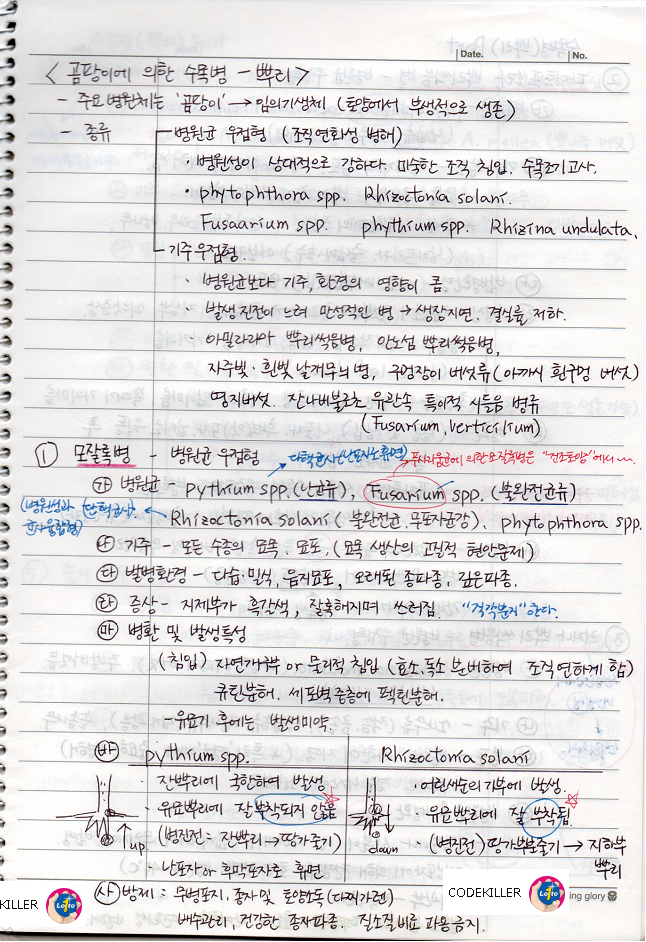 Date. No.
< 곰팡이에 의한 수목병 - 뿌리 >
- 주요병원체는 '곰팡이' → 임의기생체 (토양에서 부생적으로 생존)
- 종류
병원균 우점형 (조직연화성 병해)
· 병원성이 상대적으로 강하다. 미숙한 조직 침입. 수목조기고사.
· phytophthora spp. Rhizoctonia solani.
Fusaarium spp. phythium spp. Rhizina undulata.
기주우점형.
· 병원균보다 기주, 환경의 영향이 큼.
· 발생진전이 느려 만성적인 병 → 생장지연. 결실률 저하.
· 아밀라리아 뿌리썩음병, 안노섬 뿌리썩음병,
자주빛·흰빛 날개무늬병, 구멍장이 버섯류 (아까시 흰구멍 버섯)
영지버섯. 잔나비불로초, 유관속 특이적 시들음 병류
(Fusarium, verticillium)
① 모잘록병 - 병원균 우점형
다핵균사(난포자노류면) 푸사리움균에 의한 모잘록병은 "건조토양"에서
㉮ 병원균 pythium spp. (난균류), Fusarium spp. (불완전균류)
(병원성과 균사융합형) (다핵균사) ← Rhizoctonia solani (불완전균, 무포자균강). phytophthora spp.
㉯ 기주 - 모든 수종의 묘목. 묘포. (묘목 생산의 고질적 현안문제)
㉰ 발병환경 - 다습, 밀식, 음지묘포, 오래된 종파종, 깊은파종.
㉱ 증상 - 지제부가 흑갈색, 잘록해지며 쓰러짐. "직각분지"한다.
㉲ 병환 및 발생특성
(침입) 자연개구부 or 물리적 침입 (효소, 독소 분비하여 조직연하게 함)
큐틴분해. 세포벽 중층에 펙틴분해.
- 유묘기 후에는 발생미약.
㉳ pythium spp. Rhizoctonia solani
· 잔뿌리에 국한하여 발생 · 어린새순의 기부에 발생.
· 유묘뿌리에 잘 부착되지 않음 · 유묘뿌리에 잘 부착됨.
up (병진전: 잔뿌리 → 땅가줄기) down · (병진전) 땅가부분줄기 → 지하부 뿌리
· 난포자 or 후막포자로 휴면
㉴ 방제: 무병포지, 종자 및 토양소독 (다찌가렌)
배수관리, 건강한 종자파종. 질소질비료 과용금지.
KILLER Lotto CODEKILLER Lotto ing glory